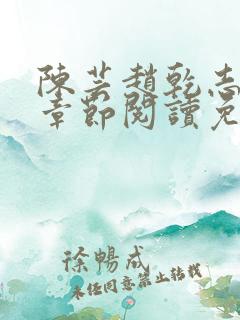 陳芸趙乾志
章節閱讀免
徐暢成
未經同意禁止轉載